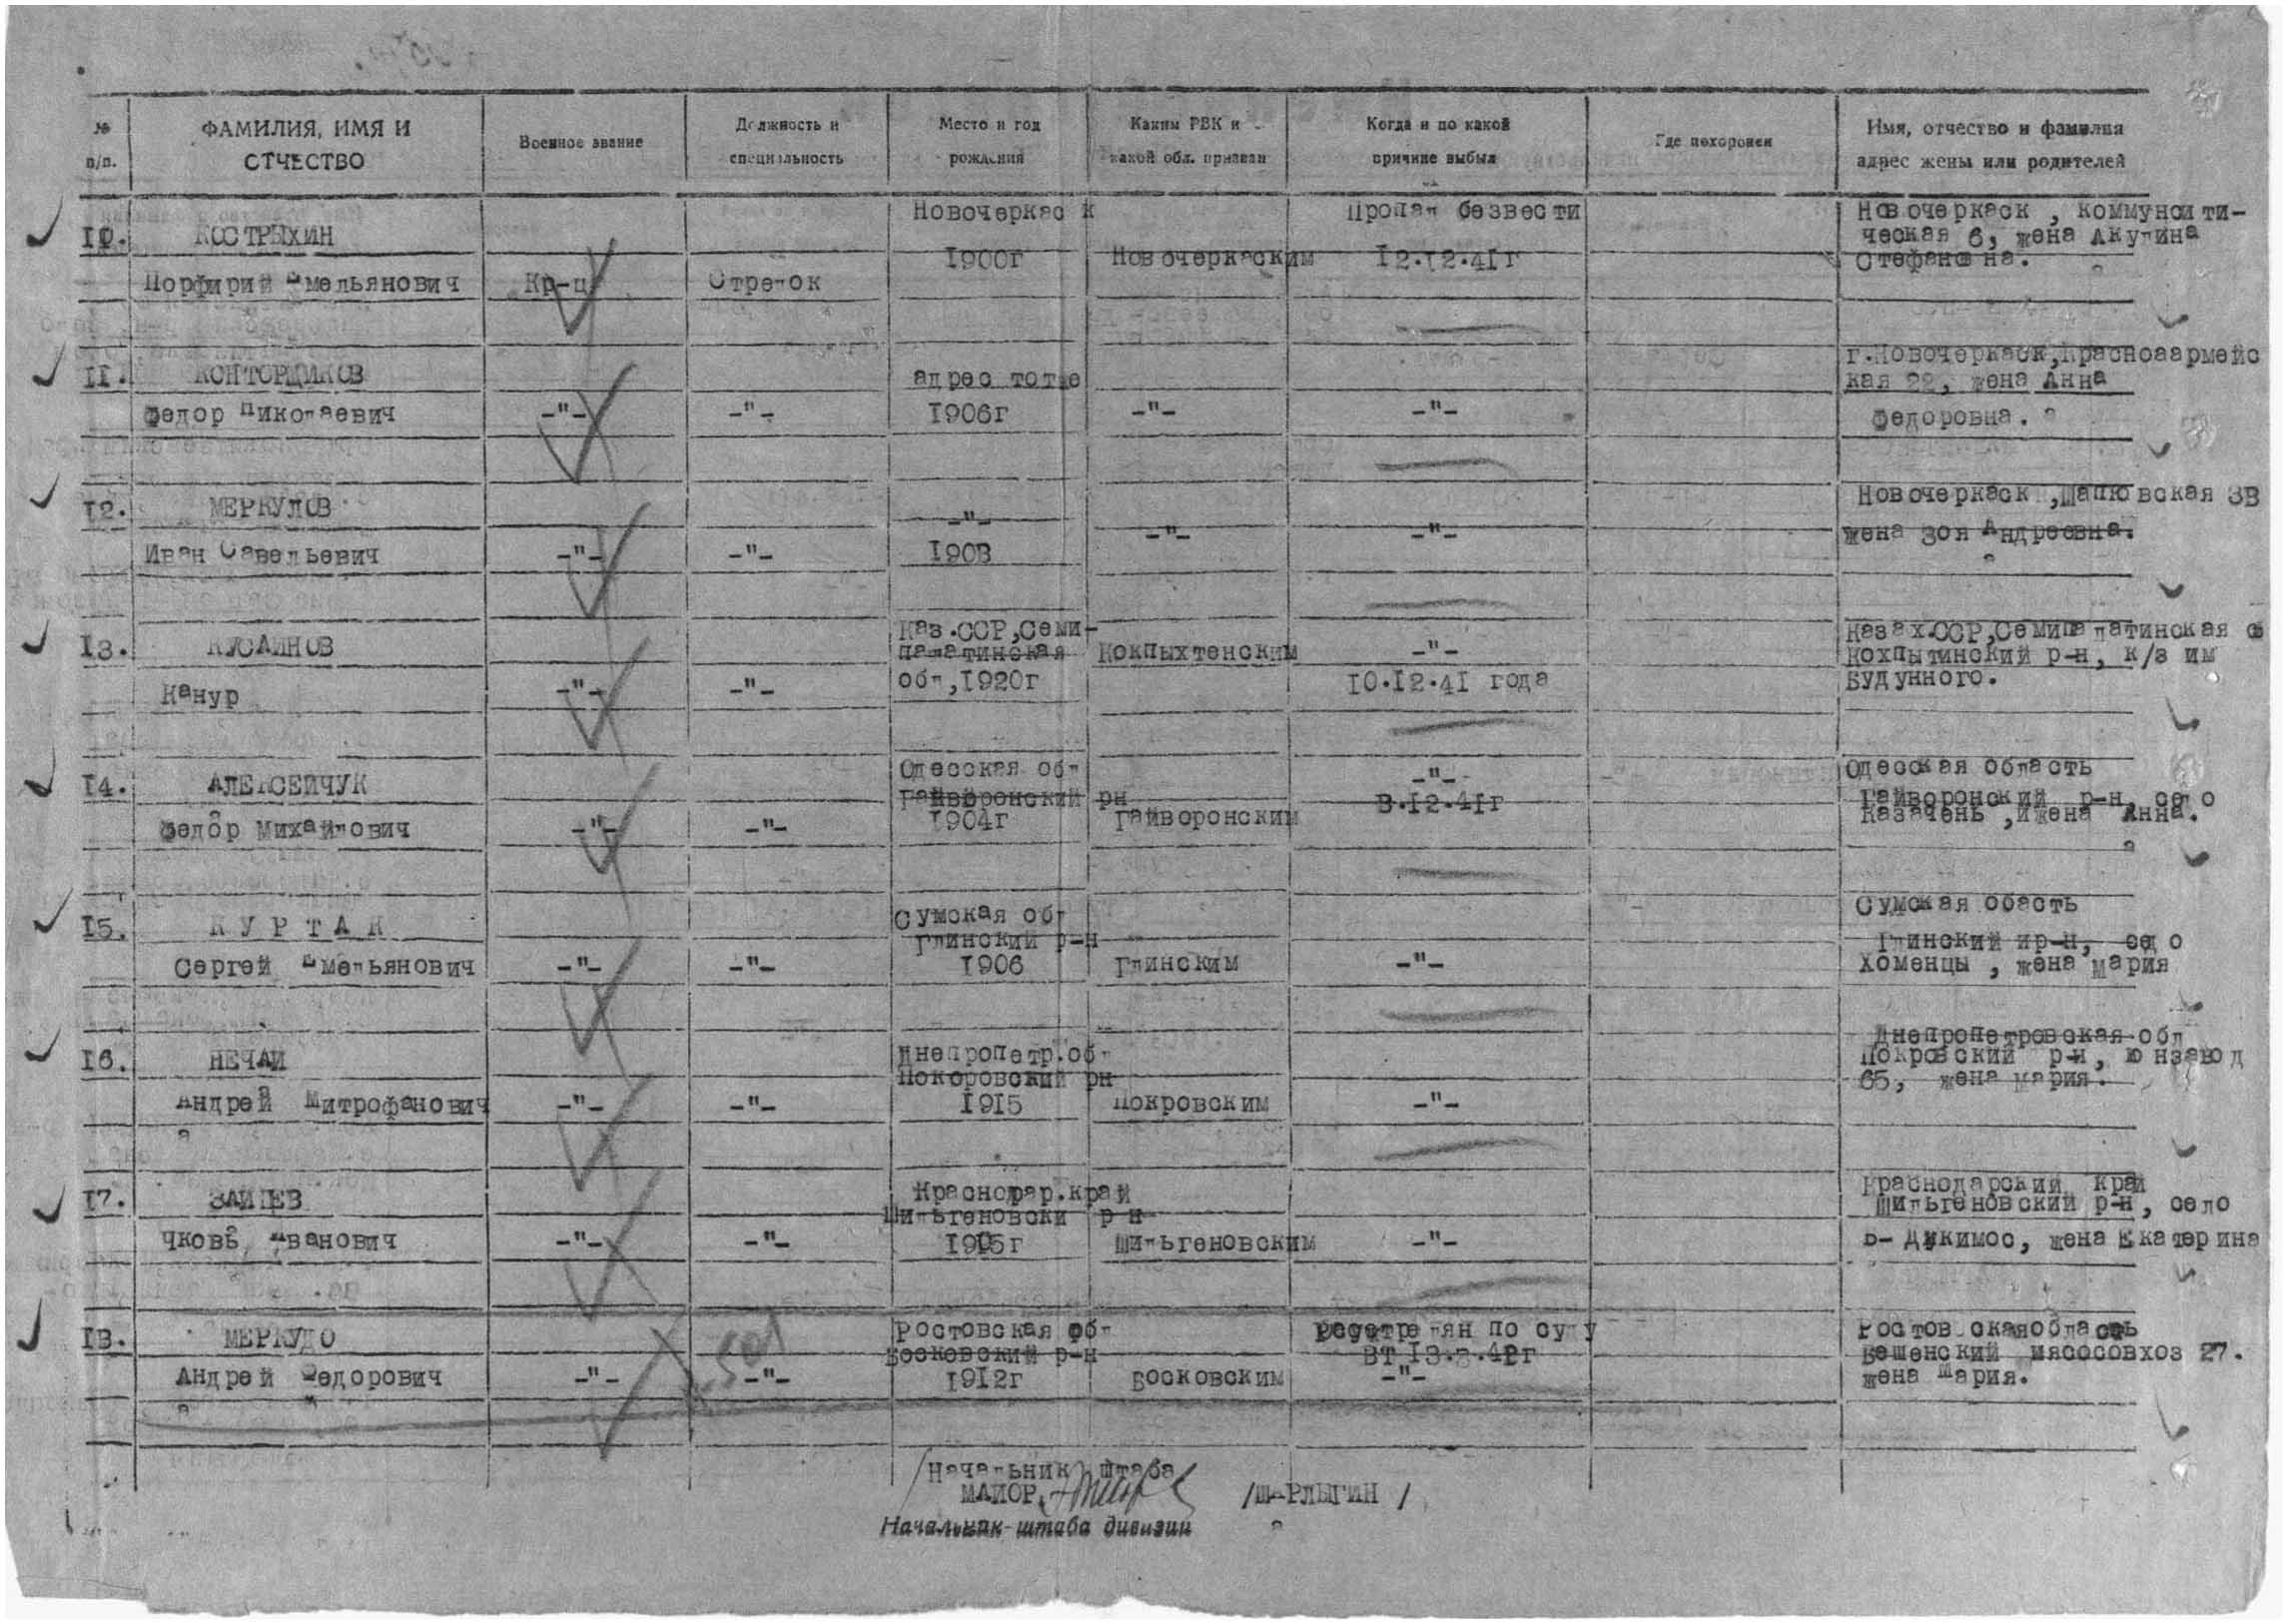 № п/п.
ФАМИЛИЯ, ИМЯ И ОТЧЕСТВО
Военное звание
Должность и специальность
Место и год рождения
Каким РВК и какой обл. призван
Когда и по какой причине выбыл
Где похоронен
Имя, отчество и фамилия адрес жены или родителей
10.
КОСТРЫХИН
Порфирий Емельянович
Кр-ц
Стрелок
Новочеркаск
1900г
Новочеркаским
Пропал безвести
12.12.41г
Новочеркаск , коммунсити-
ческая 6, жена Акулина
Стефановна.
11.
КОНТОРЩИКОВ
Федор Николаевич
-"-
-"-
адрес тотже
1906г
-"-
-"-
г.Новочеркаск,Красноаармейс
кая 22, жена Анна
Федоровна.
12.
МЕРКУЛОВ
Иван Савельевич
-"-
-"-
-"-
1903
-"-
-"-
Новочеркаск ,
жена Зоя Андреевна.
13.
КУСАИНОВ
Канур
-"-
-"-
Каз.ССР,Семи-
палатинская
обл,1920г
Кокпыхтенским
-"-
10.12.41 года
Казах.ССР,Семипалатинская
Кохпытинский р-н, к/з им
Будунного.
14.
АЛЕКСЕЙЧУК
Федор Михайлович
-"-
-"-
Одесская обл
Гайворонский рн
1904г
Гайворонским
-"-
8.12.41г
Одесская область
Гайворонский р-н, село
Казачень , жена Анна.
15.
К У Р Т А К
Сергей Емельянович
-"-
-"-
Сумская обл
Глинский р-н
1906
Глинским
-"-
Сумская обасть
Глинский ир-н, село
Хоменцы , жена Мария
16.
НЕЧАЙ
Андрей Митрофанович
-"-
-"-
Днепропетр.обл
Покоровский рн
1915
Покровским
-"-
Днепропетровская обл
Покровский р-н, конзавод
65, жена Мария.
17.
ЗАЙЦЕВ
Иванович
-"-
-"-
Краснодар.край
Шильгеновски р н
19 5г
Шильгеновским
-"-
Краснодарский край
Шильгеновский р-н, село
жена Екатерина
18.
МЕРКУЛО
Андрей Федорович
-"-
-"-
Ростовская обл
Босковский р-н
1912г
Босковским
растрелян по суду
ВТ 42г
-"-
Ростовскаяобласть
Вешенский мясосовхоз 27.
жена Мария.
Начальник штаба
МАЙОР
/ШАРЛЫГИН /
Начальник штаба дивизии